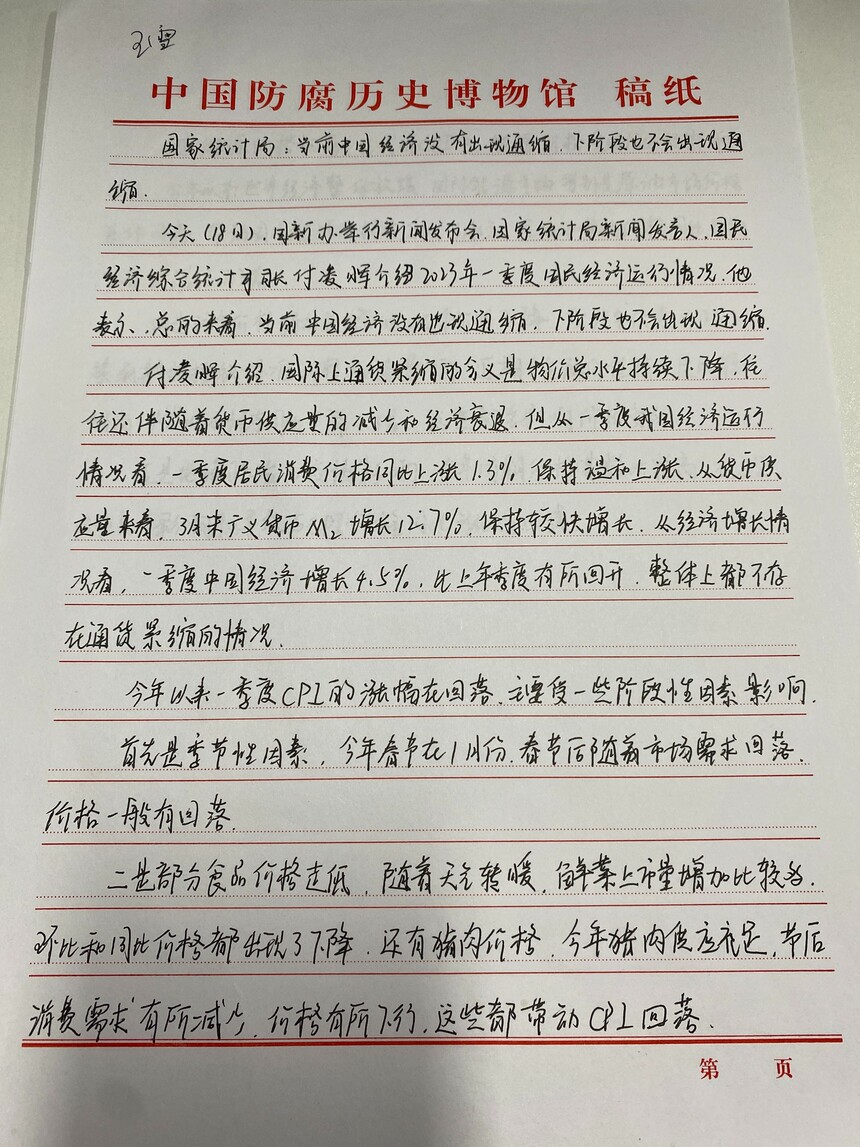 王雪
中国防腐历史博物馆 稿纸
国家统计局：当前中国经济没有出现通缩，下阶段也不会出现通
缩.
今天（18日），国新办举行新闻发布会，国家统计局新闻发言人、国民
经济综合统计司司长付凌晖介绍2023年一季度国民经济运行情况. 他
表示，总的来看，当前中国经济没有出现通缩，下阶段也不会出现通缩.
付凌晖介绍，国际上通货紧缩的含义是物价总水平持续下降，往
往还伴随着货币供应量的减少和经济衰退. 但从一季度我国经济运行
情况看，一季度居民消费价格同比上涨1.3%，保持温和上涨. 从货币供
应量来看，3月末广义货币M2增长12.7%，保持较快增长. 从经济增长情
况看，一季度中国经济增长4.5%，比上年季度有所回升. 整体上都不存
在通货紧缩的情况.
今年以来一季度CPI的涨幅在回落，主要受一些阶段性因素影响.
首先是季节性因素，今年春节在1月份，春节后随着市场需求回落，
价格一般有回落.
二是部分食品价格走低，随着天气转暖，鲜菜上市量增加比较多，
环比和同比价格都出现了下降. 还有猪肉价格，今年猪肉供应充足，节后
消费需求有所减少，价格有所下行，这些都带动CPI回落.
第 页